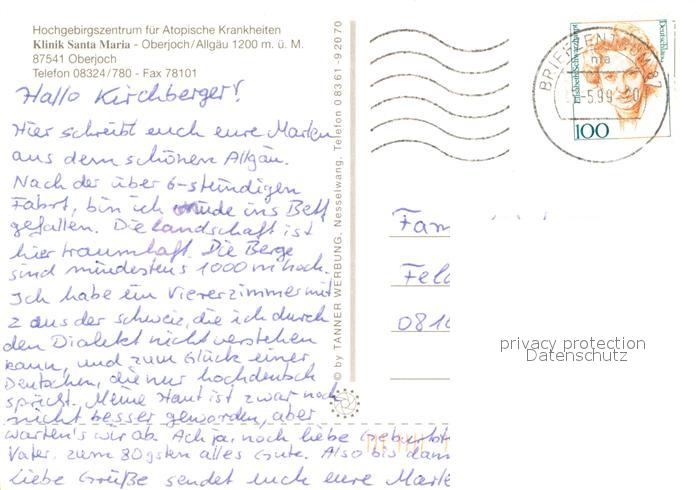 Hochgebirgszentrum für Atopische Krankheiten
Klinik Santa Maria - Oberjoch/Allgäu 1200 m. ü. M.
87541 Oberjoch
Telefon 08324/780 - Fax 78101
Hallo Kirchberger!
Hier schreibt euch eure Marlen
aus dem schönen Allgäu.
Nach der über 6-stündigen
Fahrt, bin ich müde ins Bett
gefallen. Die Landschaft ist
hier traumhaft. Die Berge
sind mindestens 1000 m hoch.
Ich habe ein Viererzimmer mit
2 aus der schweiz, die ich durch
den Dialekt nicht verstehen
kann, und zum Glück einer
Deutschen, die nur hochdeutsch
spricht. Meine Haut ist zwar noch
nicht besser geworden, aber
warten's wir ab. Ach ja, noch liebe
Vater. zum 80gsten alles Gute. Also bis dann
Liebe Grüße sendet euch eure Marle
© by TANNER WERBUNG, Nesselwang, Telefon 08361-92070
BRIEFZENTRUM 87
-5.99
Deutschland
100
Fam
Feld
0816
privacy protection
Datenschutz